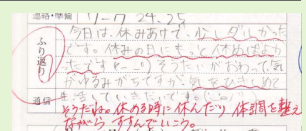 連絡・準備
ワーク 24,25
ふり返り
今日は、休みあけで、少しダルかった
です。休みの日にもっと休めばよか
ったです(ーー;) そうたいがおわって気
がゆるみがちですが、気をひきしめて
通信
そうだね。休める時に休んだり 体調を整え
ながら すすんでいこう。